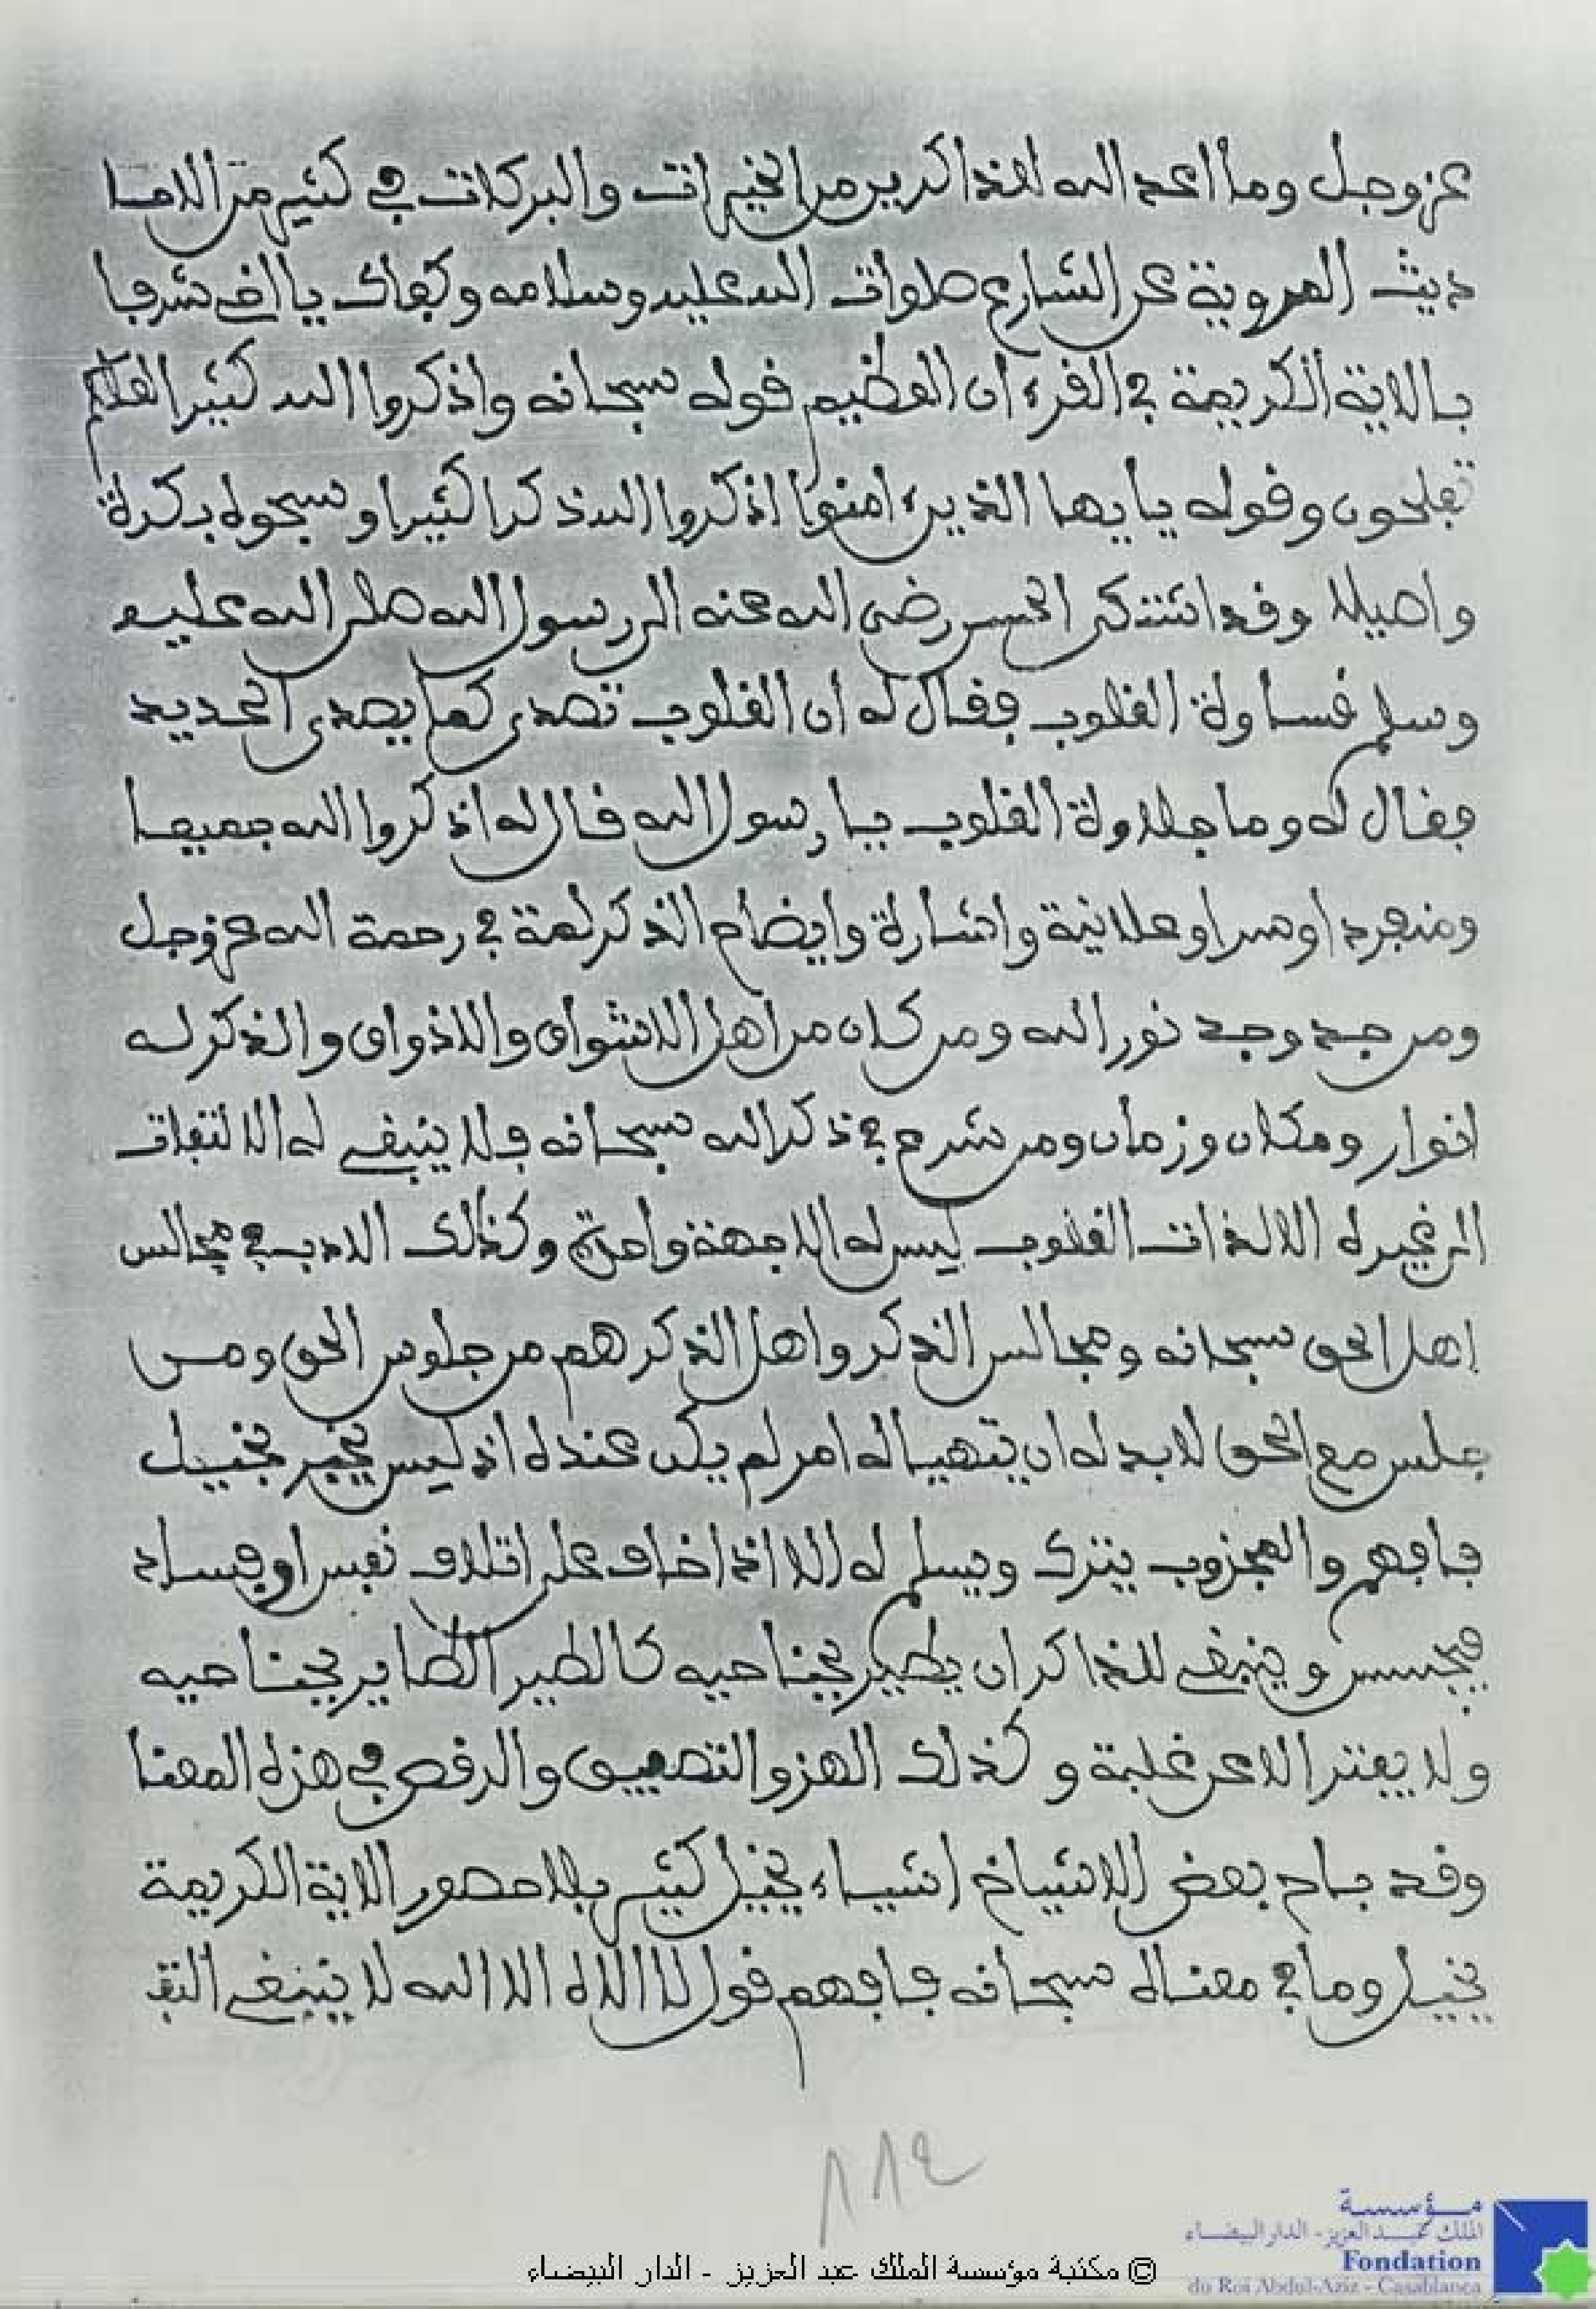 عز وجل وما اعد الله للذاكرين من الخيرات والبركات في كثير من الاحا
ديث المروية عن الشارع صلوات الله عليه وسلامه وكفاك يا اخي شرفا
بالاية الكريمة في القرءان العظيم قوله سبحانه واذكروا الله كثيرا لعلكم
تفلحون وقوله يايها الذين ءامنوا اذكروا الله ذكرا كثيرا وسبحوه بكرة
واصيلا وقد اشتكى الحسن رضى الله عنه الى رسول الله صلى الله عليه
وسلم قساوة القلوب فقال له ان القلوب تصدى كما يصدى الحديد
فقال له وما جلاوة القلوب يا رسول الله قال له اذكروا الله جميعا
ومنفردا وسرا وعلانية واشارة وايضا م الذكر لعة في رحمة الله عز وجل
ومن جد وجد نور الله ومن كان من اهل الاشواق والاذواق والذكر له
انوار ومكان وزمان ومن شرح في ذكر الله سبحانه فلا ينبغي له الالتفات
الى غيره الالذات القلوب ليس له الا جهة واحدة وكذلك الادب في مجالس
اهل الحق سبحانه ومجالس الذكر واهل الذكر هم من جلوس الحق ومن
جلس مع الحق لا بد له ان يتهيا له امر لم يكن عنده اذ ليس بخير بخيل
فافهم والمجزوب يترك ويسلم له الا اذا خاف على اتلاف نفس او فساد
فيحبس وينبغي للذاكر ان يطير بجناحيه كالطير الطاير بجناحيه
ولا يفتر الا عن غلبة وكذلك الهز والتصفيق والرقص في هذه المعنا
وقد باح بعض الاشياخ اشياء بخيل كثير بلا حصور الاية الكريمة
بخيل وما في معناه سبحانه فافهم قول لا الاه الا الله لا ينبغي التقـ
١١٤
© مكتبة مؤسسة الملك عبد العزيز - الدار البيضاء
مؤسسة
الملك عبد العزيز - الدار البيضاء
Fondation
du Roi Abdul-Aziz - Casablanca